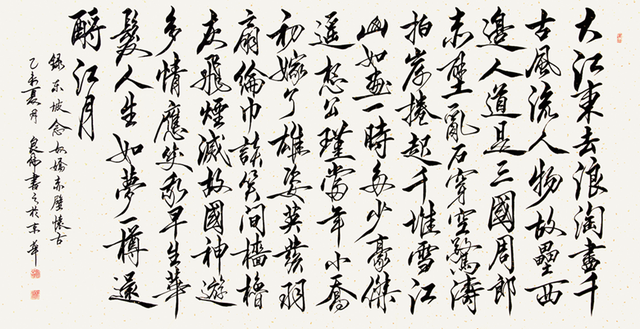 大江東去浪淘盡千
古風流人物故壘西
邊人道是三國周郎
赤壁亂石穿空驚濤
拍岸捲起千堆雪江
山如畫一時多少豪傑
遥想公瑾當年小喬
初嫁了雄姿英發羽
扇綸巾談笑间檣櫓
灰飛煙滅故國神遊
多情應笑我早生華
髮人生如夢一樽還
酹江月
錄東坡念奴嬌赤壁懷古
乙未夏月 書之於京華